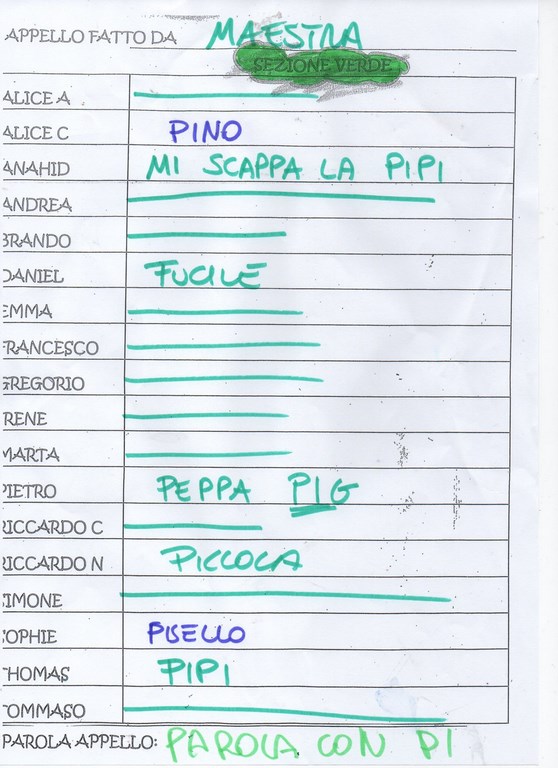 APPELLO FATTO DA MAESTRA
SEZIONE VERDE
ALICE A
ALICE C PINO
ANAHID MI SCAPPA LA PIPI
ANDREA
BRANDO
DANIEL FUCILE
EMMA
FRANCESCO
GREGORIO
IRENE
MARTA
PIETRO PEPPA PIG
RICCARDO C
RICCARDO N PICCOLA
SIMONE
SOPHIE PISELLO
THOMAS PIPI
TOMMASO
PAROLA APPELLO: PAROLA CON PI